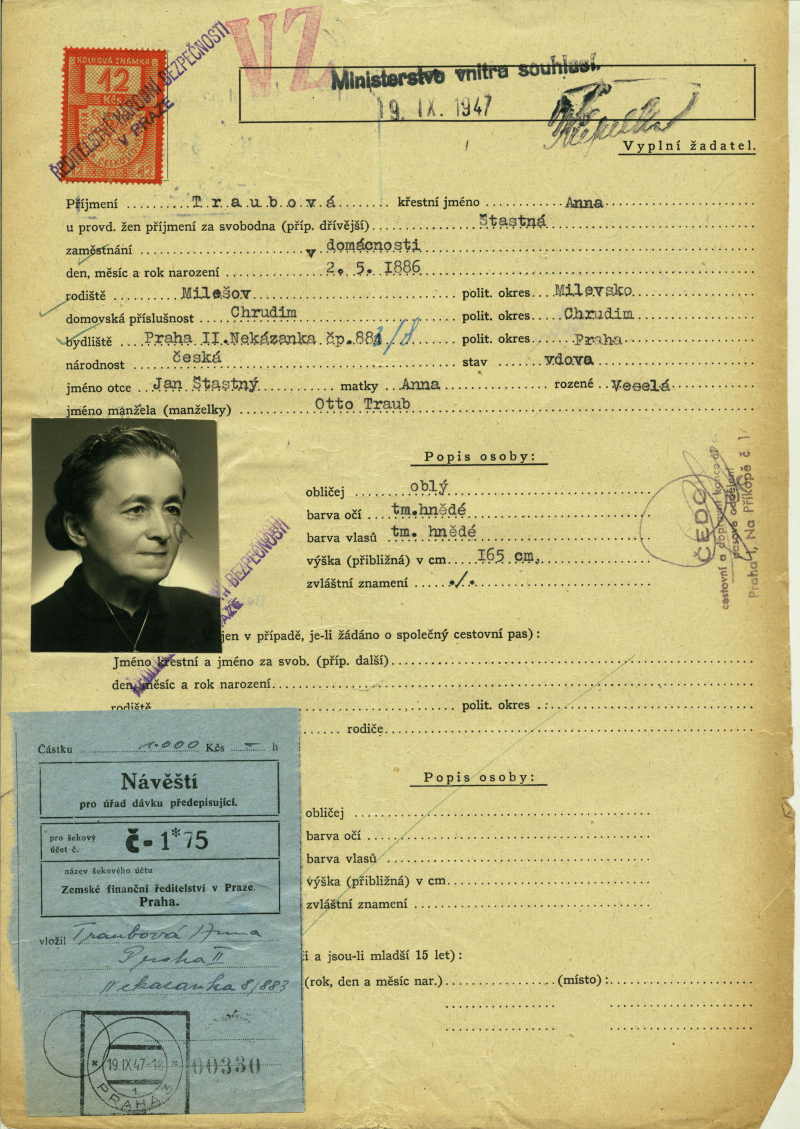 KOLKOVÁ ZNÁMKA
12
Kčs
ŘEDITELSTVÍ NÁRODNÍ BEZPEČNOSTI
V PRAZE
VZ
Ministerstvo vnitra souhlasí.
19. IX. 1947
Vyplní žadatel.
Příjmení Traubová křestní jméno Anna
u provd. žen příjmení za svobodna (příp. dřívější) Štastná
zaměstnání v domácnosti
den, měsíc a rok narození 2. 5. 1886
rodiště Milešov polit. okres Milevsko
domovská příslušnost Chrudim polit. okres Chrudim
bydliště Praha II. Nekázanka čp. 88 /8 polit. okres Praha
národnost česká stav vdova
jméno otce Jan Štastný matky Anna rozené Veselá
jméno manžela (manželky) Otto Traub
Popis osoby:
obličej oblý
barva očí tm.hnědé
barva vlasů tm. hnědé
výška (přibližná) v cm 165 cm.
zvláštní znamení ./.
ČEDOK
cestovní a dopravní kancelář
pasové oddělení
Praha I, Na Příkopě č. 1
BEZPEČNOSTI
jen v případě, je-li žádáno o společný cestovní pas):
Jméno křestní a jméno za svob. (příp. další)
den, měsíc a rok narození
rodiště polit. okres
rodiče
Popis osoby:
obličej
barva očí
barva vlasů
výška (přibližná) v cm
zvláštní znamení
i a jsou-li mladší 15 let):
(rok, den a měsíc nar.) (místo):
Částku 1.000 Kčs - h
Návěstí
pro úřad dávku předepisující.
pro šekový účet č. č-1*75
název šekového účtu
Zemské finanční ředitelství v Praze.
Praha.
vložil Traubová Anna
Praha II
Nekazanka 8/883
19.IX.47-12
1
PRAHA 3
00330